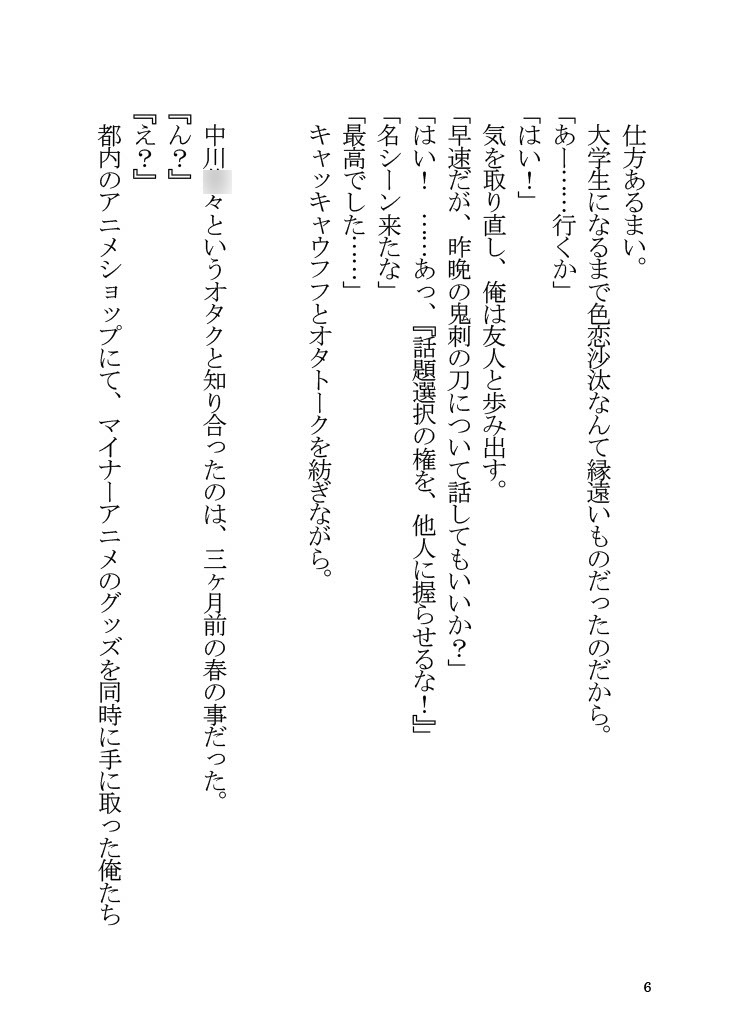 仕方あるまい。
大学生になるまで色恋沙汰なんて縁遠いものだったのだから。
「あー……行くか」
「はい！」
気を取り直し、俺は友人と歩み出す。
「早速だが、昨晩の鬼刺の刀について話してもいいか？」
「はい！　……あっ、『話題選択の権を、他人に握らせるな！』」
「名シーン来たな」
「最高でした……」
キャッキャウフフとオタトークを紡ぎながら。
中川々というオタクと知り合ったのは、三ヶ月前の春の事だった。
『ん？』
『え？』
都内のアニメショップにて、マイナーアニメのグッズを同時に手に取った俺たち
6